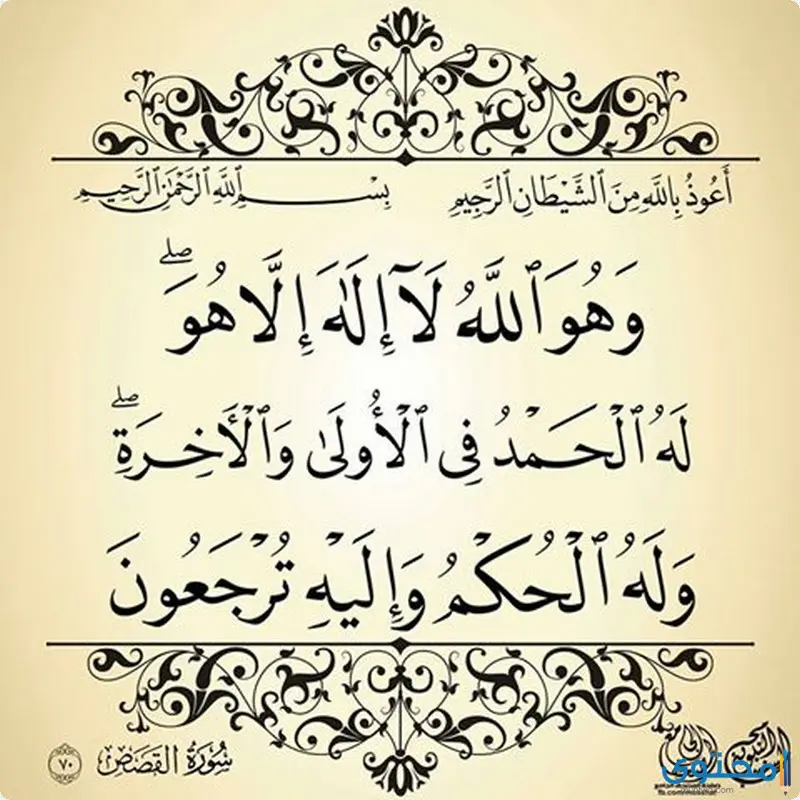 أَعُوذُ بِاللَّهِ مِنَ ٱلشَّيْطَانِ ٱلرَّجِيمِ بِسْمِ ٱللَّهِ ٱلرَّحْمَٰنِ ٱلرَّحِيمِ
وَهُوَ ٱللَّهُ لَآ إِلَٰهَ إِلَّا هُوَ ۖ
لَهُ ٱلْحَمْدُ فِي ٱلْأُولَىٰ وَٱلْأَخِرَةِ ۖ
وَلَهُ ٱلْحُكْمُ وَإِلَيْهِ تُرْجَعُونَ
سُورَةُ القَصَصِ ٧٠
محتوى